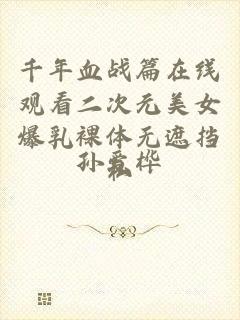 千年血战篇在线
观看二次元美女
爆乳裸体无遮挡
孙桦